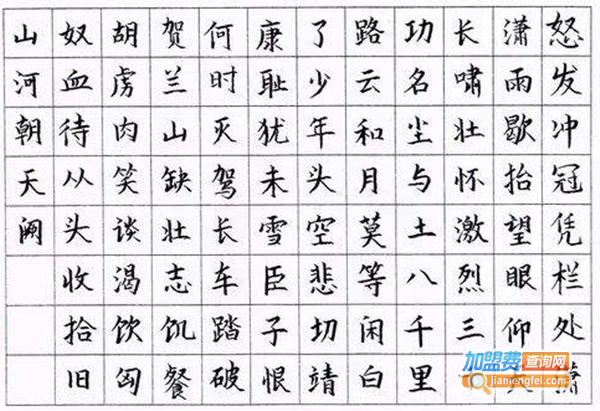 怒发冲冠凭栏处潇
潇雨歇抬望眼仰天
长啸壮怀激烈三
功名尘与土八千里
路云和月莫等闲白
了少年头空悲切靖
康耻犹未雪臣子恨
何时灭驾长车踏破
贺兰山缺壮志饥餐
胡虏肉笑谈渴饮匈
奴血待从头收拾旧
山河朝天阙
加盟费查询网
jiamengfei.com